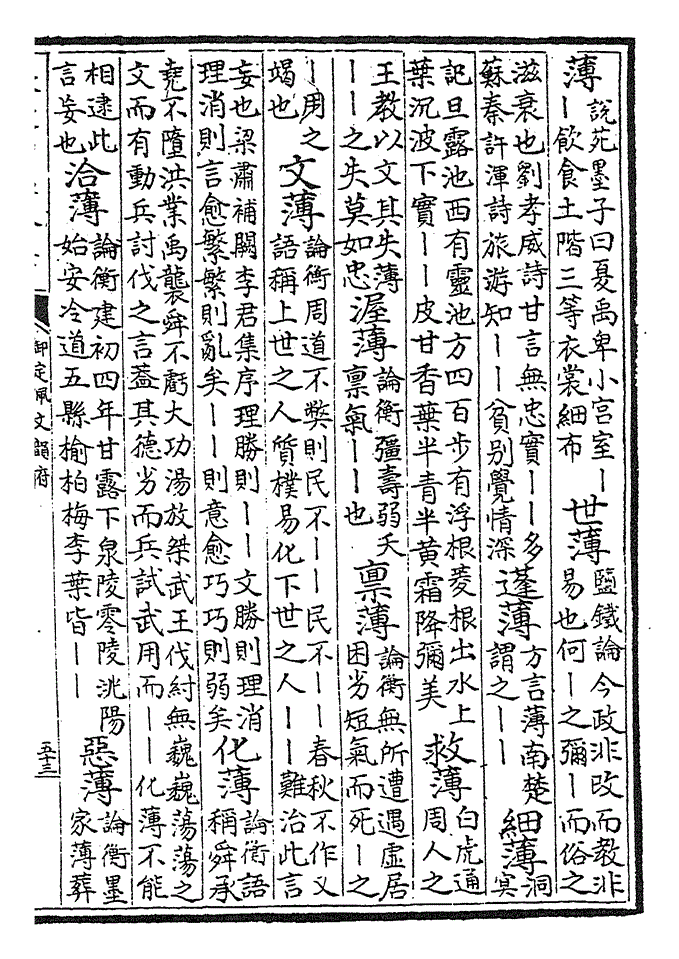 薄說苑墨子曰夏禹卑小宮室｜
｜飲食土階三等衣裳細布
世薄鹽鐵論今政非改而教非
易也何｜之彌｜而俗之
滋衰也劉孝威詩甘言無忠實｜｜多
蘇秦許渾詩旅游知｜｜貧别覺情深
蓬薄方言薄南楚
謂之｜｜
細薄洞
冥
記旦露池西有靈池方四百步有浮根菱根出水上
葉沉波下實｜｜皮甘香葉半青半黄霜降彌美
救薄白虎通
周人之
王教以文其失薄
｜｜之失莫如忠
渥薄論衡彊壽弱夭
禀氣｜｜也
禀薄論衡無所遭遇虛居
困劣短氣而死｜之
｜用之
竭也
文薄論衡周道不弊則民不｜｜民不｜｜春秋不作又
語稱上世之人質樸易化下世之人｜｜難治此言
妄也梁肅補闕李君集序理勝則｜｜文勝則理消
理消則言愈繁繁則亂矣｜｜則意愈巧巧則弱矣
化薄論衡語
稱舜承
堯不墮洪業禹襲舜不虧大功湯放桀武王伐紂無巍巍蕩蕩之
文而有動兵討伐之言葢其德劣而兵試武用而｜｜化薄不能
相逮此
言妄也
洽薄論衡建初四年甘露下泉陵零陵洮陽
始安冷道五縣榆柏梅李葉皆｜｜
惡薄論衡墨
家薄葬
御定佩文韻府
五十三